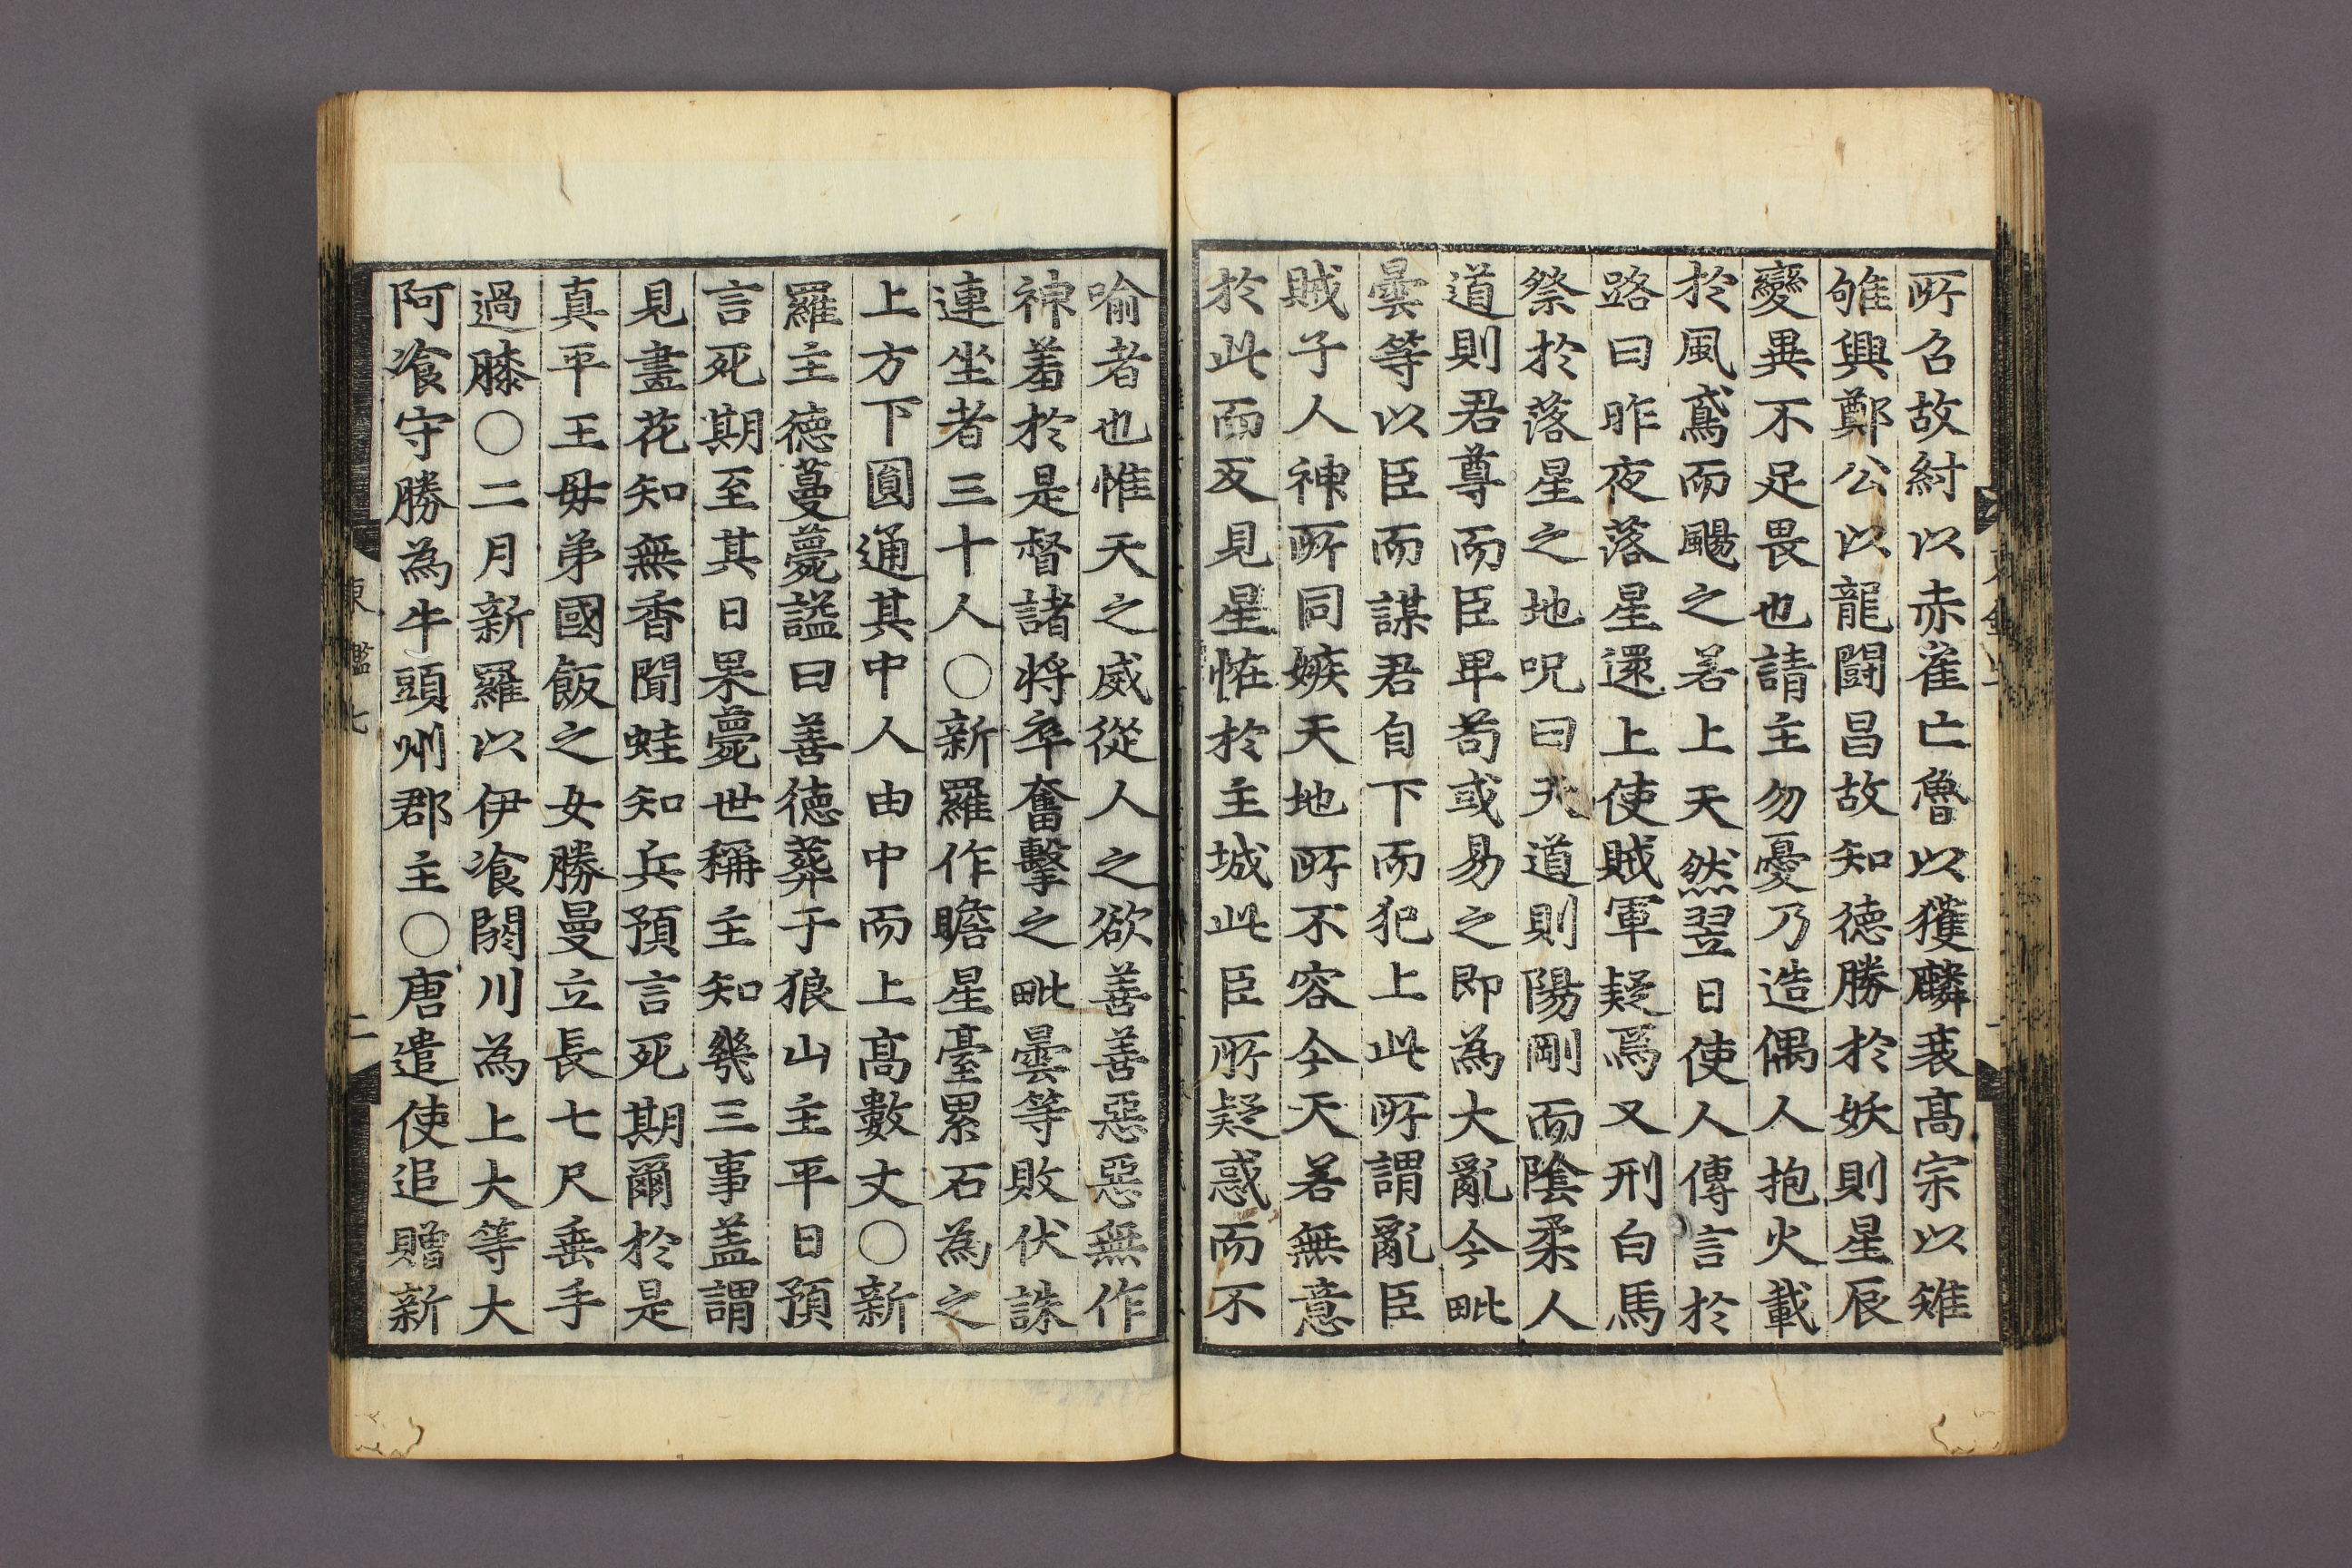 所召故紂以赤雀亡魯以獲麟衰高宗以雉
雊興鄭公以龍鬪昌故知德勝於妖則星辰
變異不足畏也請主勿憂乃造偶人抱火載
於風鳶而颺之若上天然翌日使人傳言於
路曰昨夜落星還上使賊軍疑焉又刑白馬
祭於落星之地呪曰天道則陽剛而陰柔人
道則君尊而臣卑苟或易之即為大亂今毗
曇等以臣而謀君自下而犯上此所謂亂臣
賊子人神所同嫉天地所不容今天若無意
於此而反見星恠於主城此臣所疑惑而不
喻者也惟天之威從人之欲善善惡惡無作
神羞於是督諸將卒奮擊之毗曇等敗伏誅
連坐者三十人〇新羅作瞻星臺累石為之
上方下圓通其中人由中而上高數丈〇新
羅主德蔓薨謚曰善德葬于狼山主平日預
言死期至其日果薨世稱主知幾三事盖謂
見畫花知無香聞蛙知兵預言死期爾於是
真平王母弟國飯之女勝曼立長七尺垂手
過膝〇二月新羅以伊飡閼川為上大等大
阿飡守勝為牛頭州郡主〇唐遣使追贈新
東鑑七
二